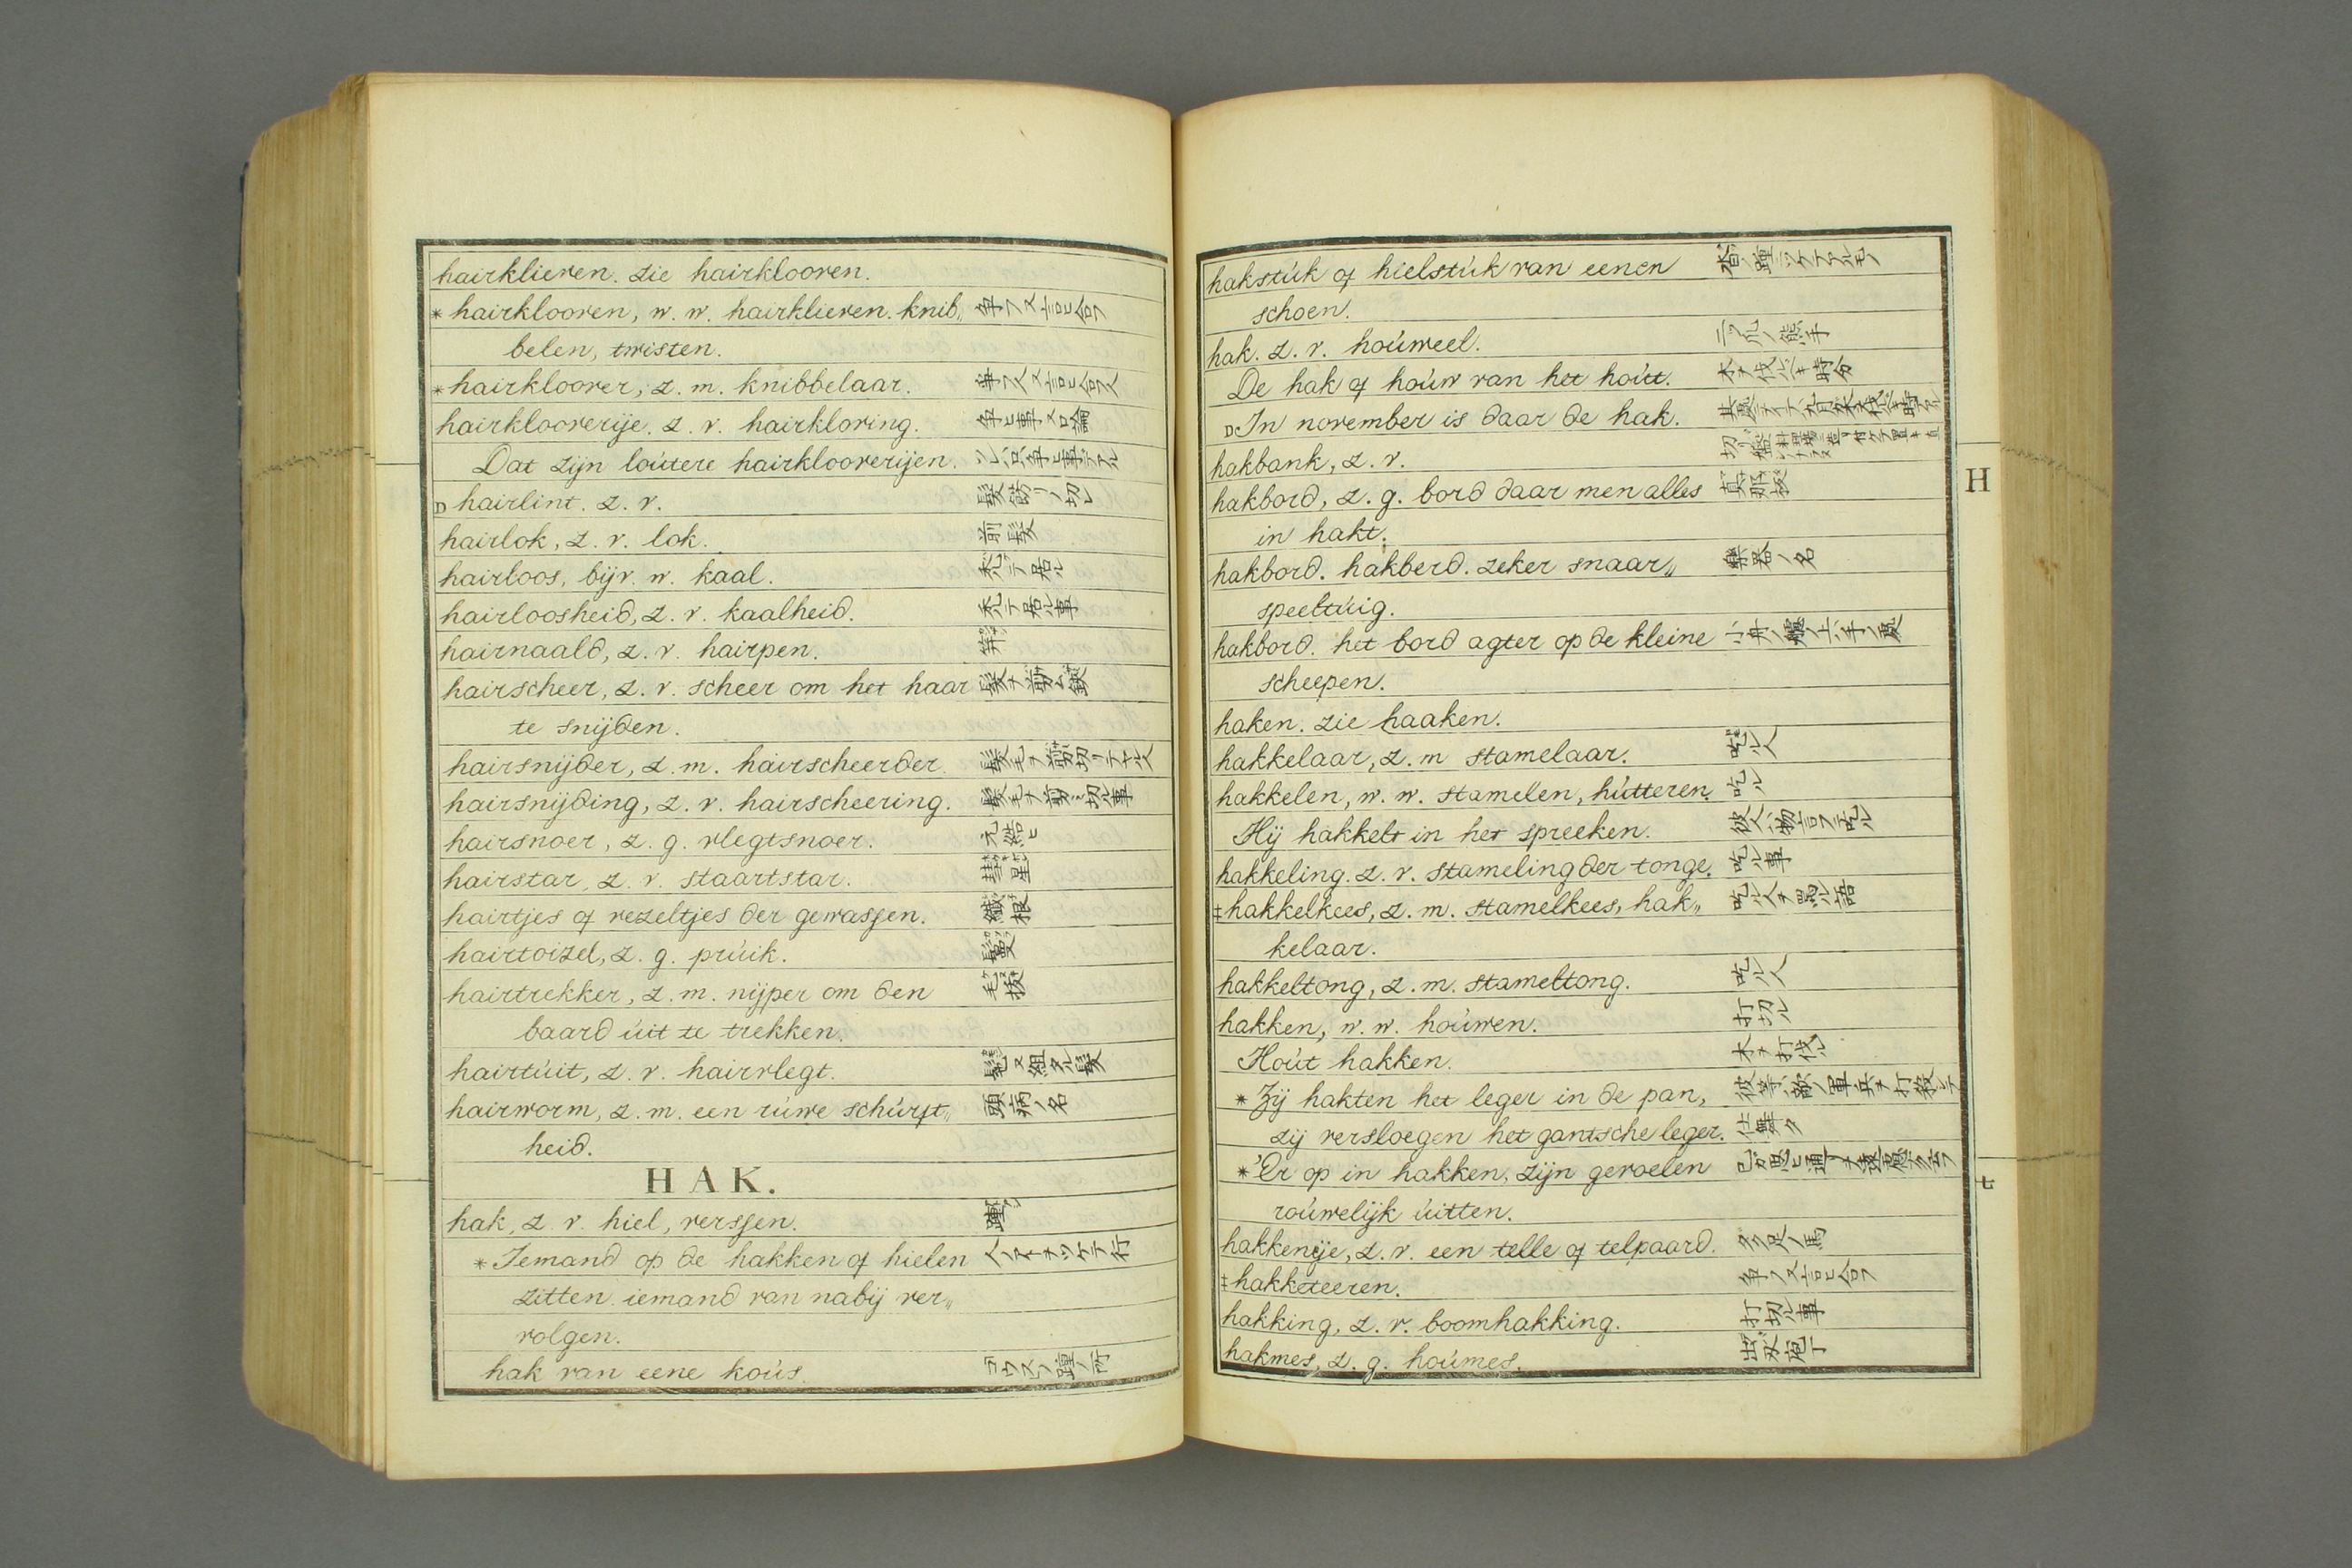 hairklieven. zie hairklooven.
* hairklooven, w. w. hairklieven. knib„ 争フ又言ヒ合フ
belen, twisten.
* hairkloover, z. m. knibbelaar. 争フ人又言ヒ合フ人
hairklooverije. z. v. hairkloving. 争ヒ事又口論
Dat zijn loútere hairklooverijen.
D hairlint. z. v. 髮飾リノ切レ
hairlok, z. v. lok. 前髮
hairloos, bijv. w. kaal. 禿テ居ル
hairloosheid, z. v. kaalheid. 禿テ居ル事
hairnaald, z. v. hairpen. 笄
hairscheer, z. v. scheer om het haar 髮ヲ剪ム鋏
te snijden.
hairsnijder, z. m. hairscheerder.
hairsnijding, z. v. hairscheering. 髮毛ヲ剪ミ切ル事
hairsnoer, z. g. vlegtsnoer. 元結ヒ
hairstar, z. v. staartstar. 彗星
hairtjes of vezeltjes der gewassen. 纖根
hairtoizel, z. g. prúik. 鬘
hairtrekker, z. m. nijper om den 毛拔
baard úit te trekken.
hairtúit, z. v. hairvlegt.
hairworm, z. m. een rúwe schúrft„ 頭病ノ名
heid.
HAK.
hak, z. v. hiel, verssen. 踵
* Iemand op de hakken of hielen
zitten. iemand van nabij ver„
volgen.
hak van eene koús. コウスノ踵ノ所
hakstúk of hielstúk van eenen 沓ノ踵ニツケテアルモノ
schoen.
hak. z. v. hoúweel.
De hak of hoúw van het hoút. 木ヲ伐ル時分
D In november is daar de hak.
hakbank, z. v.
hakbord, z. g. bord daar men alles 真那板
in hakt.
hakbord. hakberd. zeker snaar„ 樂器ノ名
speeltúig.
hakbord. het bord agter op de kleine
scheepen.
haken. zie haaken.
hakkelaar, z. m stamelaar. 吃ル人
hakkelen, w. w. stamelen, hútteren. 吃ル
Hij hakkelt in het spreeken. 彼人ハ物言フニ吃ル
hakkeling. z. v. stameling der tonge. 吃ル事
‡ hakkelkees, z. m. stamelkees, hak„ 吃ル人ヲ罵ル語
kelaar.
hakkeltong, z. m. stameltong. 吃ル人
hakken, w. w. hoúwen. 打切ル
Hoút hakken. 木ヲ打伐ル
* Zij hakten het leger in de pan, 彼等ハ敵ノ軍兵ヲ打殺シテ
zij versloegen het gantsche leger. 仕舞タ
* 'Er op in hakken, zijn gevoelen
roúwelijk úitten.
hakkeneije, z. v. een telle of telpaard.
‡ hakketeeren. 争フ又言ヒ合フ
hakking, z. v. boomhakking. 打切ル事
hakmes, z. g. hoúmes. 出刃庖丁
H
七